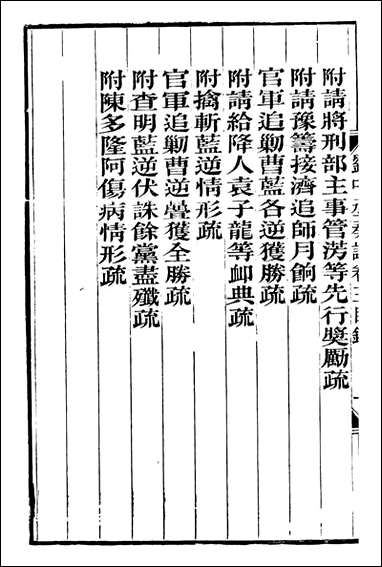 附請將刑部主事管涝等先行奬勵疏
附請豫籌接濟追師月餉疏
官軍追勦曹藍各逆獲勝疏
附請給降人袁子龍等卹典疏
附擒斬藍逆情形疏
官軍追勦曹逆疊獲全勝疏
附查明藍逆伏誅餘黨盡殲疏
附陳多隆阿傷病情形疏